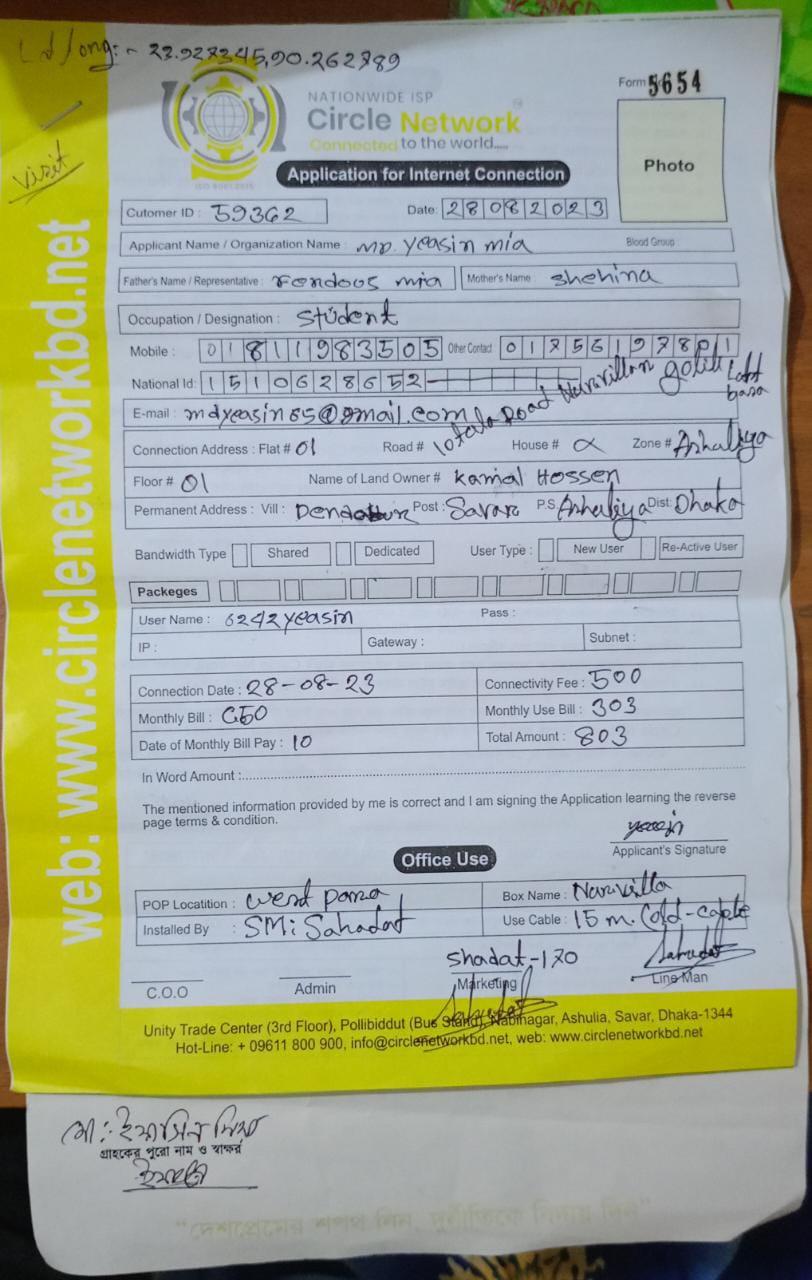 Lat/Long:- 23.927345,90.262789
Form 5654
NATIONWIDE ISP
Circle Network
Connected to the world.....
ISO 9001:2015
visit
Photo
Application for Internet Connection
Cutomer ID : 59362 Date: 28082023
Applicant Name / Organization Name : MD. Yeasin mia Blood Group :
Father's Name / Representative : Ferdoos mia Mother's Name : Shehina
Occupation / Designation : Student
Mobile : 01811983505 Other Contact 01756197801
National Id: 1510628652
E-mail : mdyeasin65@gmail.com
Connection Address : Flat # 01 Road # 10 tala Road Naravillar goli Last basa House # α Zone # Ashaliya
Floor # 01 Name of Land Owner # Kamal Hossen
Permanent Address : Vill : Post : Savar P.S. Ashaliya Dist: Dhaka
Bandwidth Type Shared Dedicated User Type : New User Re-Active User
Packeges
User Name : 6242yeasin Pass :
IP : Gateway : Subnet :
Connection Date : 28-08-23 Connectivity Fee : 500
Monthly Bill : 650 Monthly Use Bill : 303
Date of Monthly Bill Pay : 10 Total Amount : 803
In Word Amount :
The mentioned information provided by me is correct and I am signing the Application learning the reverse
page terms & condition.
Applicant's Signature
Office Use
POP Locatition : west para Box Name : Naravilla
Installed By : SMi Sahadat Use Cable : 15 m. Cold-cable
Shadat-170 Sahadat
C.O.O Admin Marketing Line Man
Unity Trade Center (3rd Floor), Pollibiddut (Bus Stand), Nabinagar, Ashulia, Savar, Dhaka-1344
Hot-Line: + 09611 800 900, info@circlenetworkbd.net, web: www.circlenetworkbd.net
web: www.circlenetworkbd.net
মো: ইয়াসিন মিয়া
গ্রাহকের পুরো নাম ও স্বাক্ষর
"দেশপ্রেমের শপথ নিন, দুর্নীতিকে বিদায় দিন"